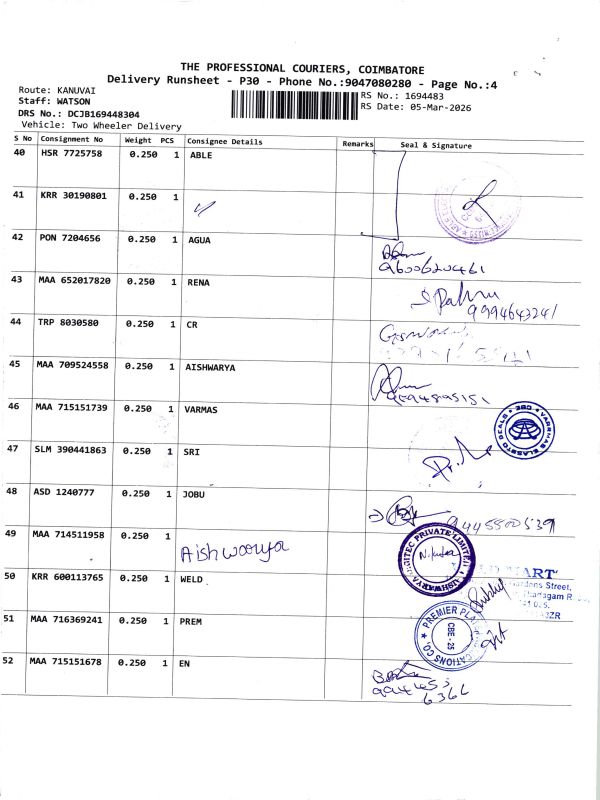 THE PROFESSIONAL COURIERS, COIMBATORE
Delivery Runsheet - P30 - Phone No.:9047080280 - Page No.:4
Route: KANUVAI
Staff: WATSON
DRS No.: DCJB169448304
Vehicle: Two Wheeler Delivery
RS No.: 1694483
RS Date: 05-Mar-2026
S No Consignment No Weight PCS Consignee Details Remarks Seal & Signature
40 HSR 7725758 0.250 1 ABLE
41 KRR 30190801 0.250 1
42 PON 7204656 0.250 1 AGUA
9600620461
43 MAA 652017820 0.250 1 RENA
9994643241
44 TRP 8030580 0.250 1 CR
45 MAA 709524558 0.250 1 AISHWARYA
46 MAA 715151739 0.250 1 VARMAS
47 SLM 390441863 0.250 1 SRI
48 ASD 1240777 0.250 1 JOBU
9445500539
49 MAA 714511958 0.250 1 Aishwarya
50 KRR 600113765 0.250 1 WELD
51 MAA 716369241 0.250 1 PREM
PREMIER
CBE - 25
52 MAA 715151678 0.250 1 EN
6366